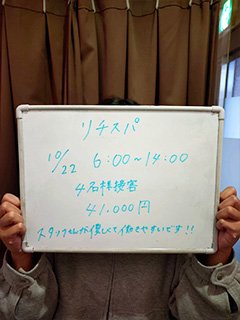 リチスパ
10/22 6:00~14:00
4名様接客
41,000円
スタッフさんが優しくて働きやすいです!!